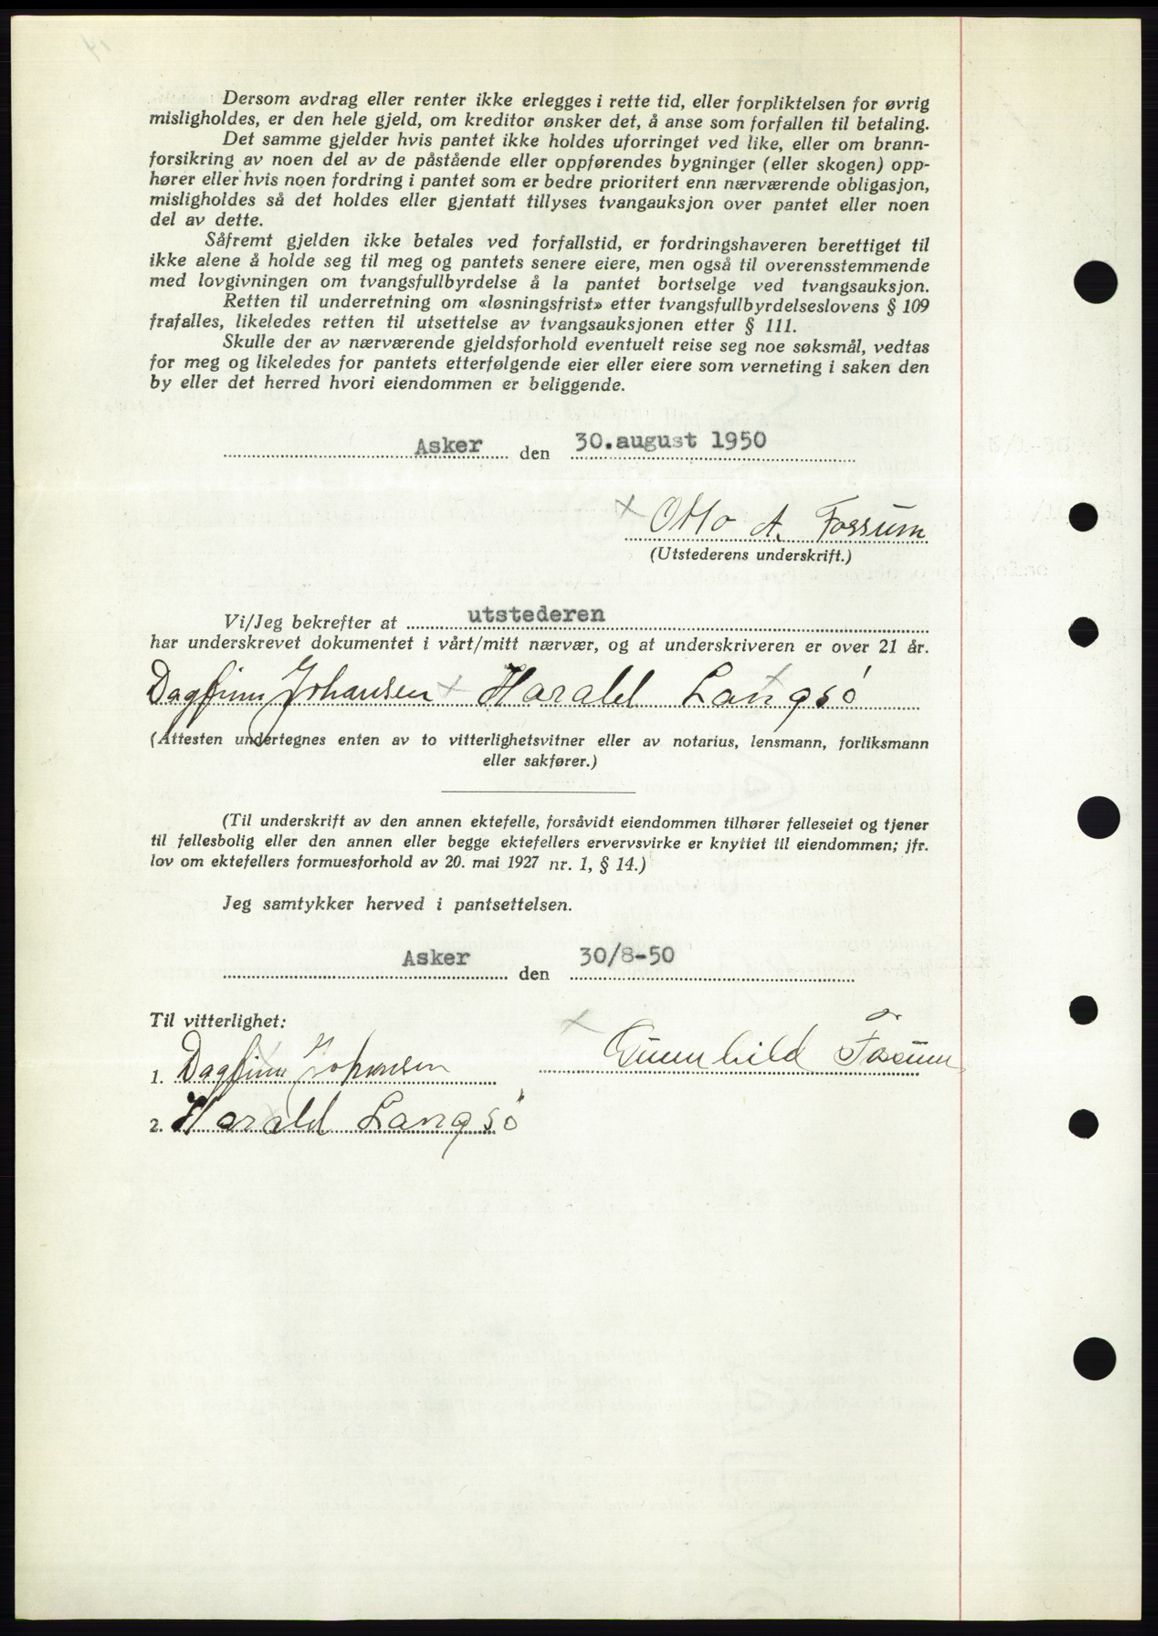 Dersom avdrag eller renter ikke erlegges i rette tid, eller forpliktelsen for øvrig
misligholdes, er den hele gjeld, om kreditor ønsker det, å anse som forfallen til betaling.
Det samme gjelder hvis pantet ikke holdes uforringet ved like, eller om brann-
forsikring av noen del av de påstående eller oppførendes bygninger (eller skogen) opp-
hører eller hvis noen fordring i pantet som er bedre prioritert enn nærværende obligasjon,
misligholdes så det holdes eller gjentatt tillyses tvangauksjon over pantet eller noen
del av dette.
Såfremt gjelden ikke betales ved forfallstid, er fordringshaveren berettiget til
ikke alene å holde seg til meg og pantets senere eiere, men også til overensstemmende
med lovgivningen om tvangsfullbyrdelse å la pantet bortselge ved tvangsauksjon.
Retten til underretning om «løsningsfrist» etter tvangsfullbyrdelseslovens § 109
frafalles, likeledes retten til utsettelse av tvangsauksjonen etter § 111.
Skulle der av nærværende gjeldsforhold eventuelt reise seg noe søksmål, vedtas
for meg og likeledes for pantets etterfølgende eier eller eiere som verneting i saken den
by eller det herred hvori eiendommen er beliggende.
Asker den 30.august 1950
Otto A. Fossum
(Utstederens underskrift.)
Vi/Jeg bekrefter at utstederen
har underskrevet dokumentet i vårt/mitt nærvær, og at underskriveren er over 21 år.
Dagfinn Johansen Harald Langsö
(Attesten undertegnes enten av to vitterlighetsvitner eller av notarius, lensmann, forliksmann
eller sakfører.)
(Til underskrift av den annen ektefelle, forsåvidt eiendommen tilhører felleseiet og tjener
til fellesbolig eller den annen eller begge ektefellers ervervsvirke er knyttet til eiendommen; jfr.
lov om ektefellers formuesforhold av 20. mai 1927 nr. 1, § 14.)
Jeg samtykker herved i pantsettelsen.
Asker den 30/8-50
Til vitterlighet:
Gunnhild Fossum
1. Dagfinn Johansen
2. Harald Langsö